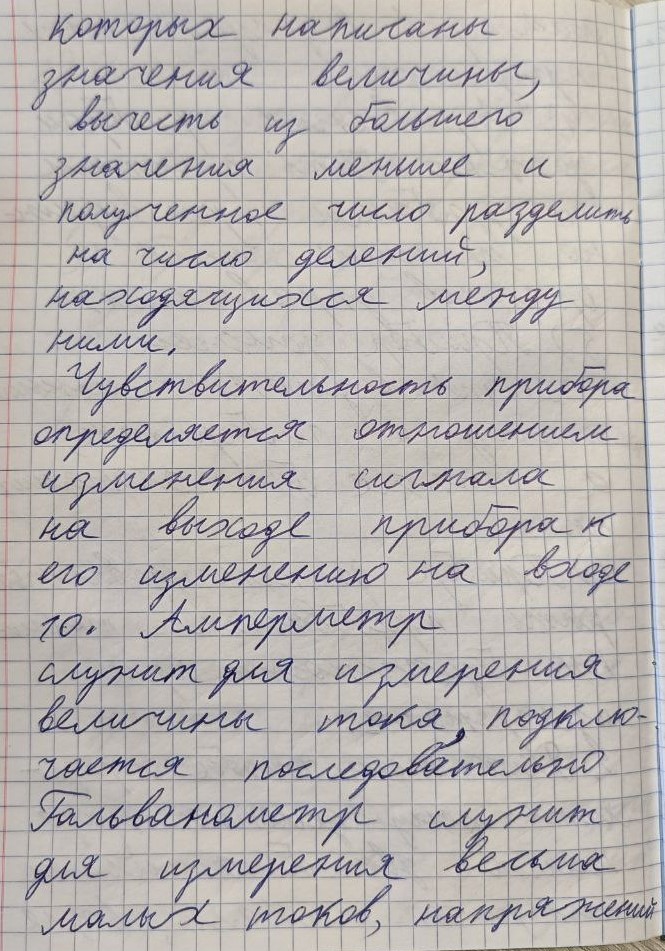 которых написаны
значения величины,
вычесть из большего
значения меньшее и
полученное число разделить
на число делений,
находящихся между
ними.
Чувствительность прибора
определяется отношением
изменения сигнала
на выходе прибора к
его изменению на входе
10. Амперметр
служит для измерения
величины тока, подклю-
чается последовательно
Гальванометр служит
для измерения весьма
малых токов, напряжений